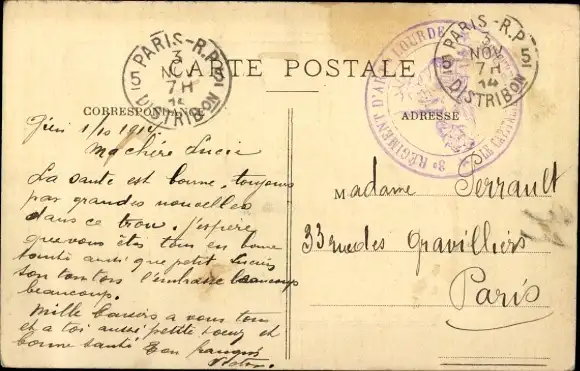 PARIS - R.P
5 3 5
NOV
7H
14
DISTRIBON
PARIS - R.P
5 3 5
NOV
7H
14
DISTRIBON
3e RÉGIMENT D'AR LOURDE
CARTE POSTALE
CORRESPONDANCE
ADRESSE
1/10 1914
Ma chère Lucie
La santé est bonne, toujours
pas grandes nouvelles
dans ce trou. J'espère
que vous êtes tous en bonne
santé aussi que petit Lucien
son tonton l'embrasse beaucoup
beaucoup.
Mille baisers a vous tous
et a toi aussi petite soeur et
bonne santé Ton frangin
Victor
Madame Perrault
33 rue des Gravilliers
Paris